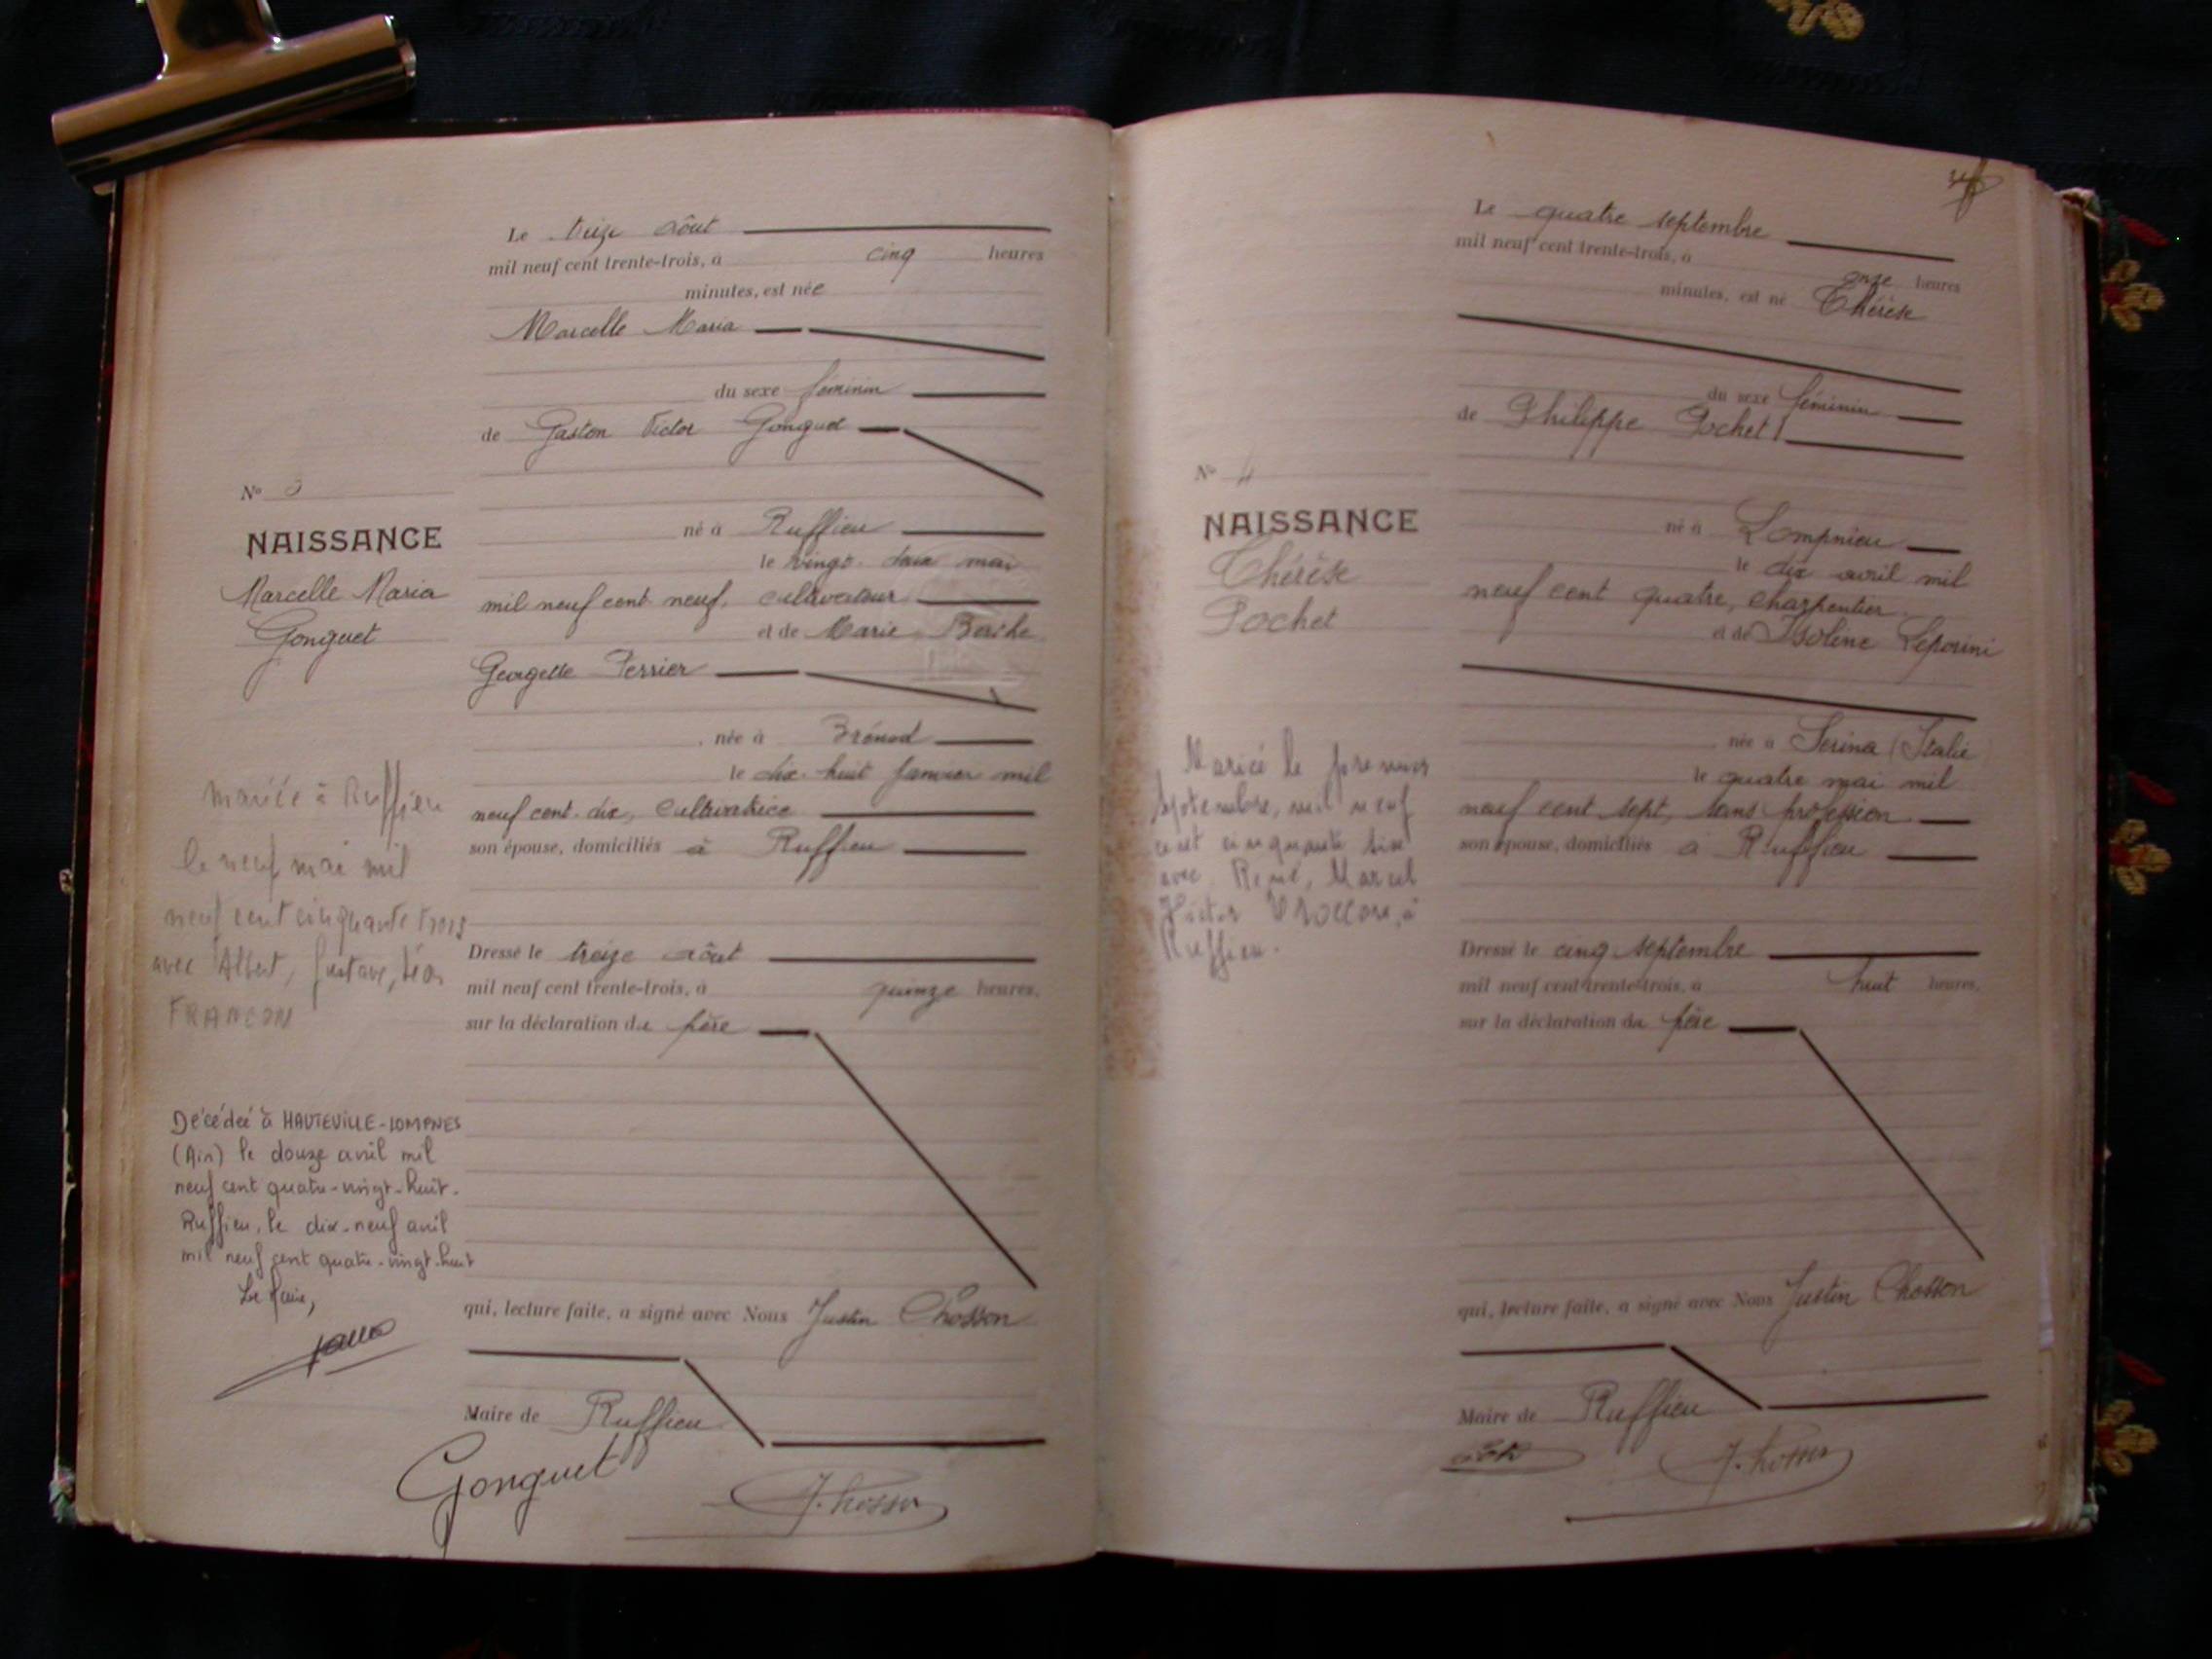 Le treize août
mil neuf cent trente-trois, à cinq heures
minutes, est née
Marcelle Maria
du sexe féminin
de Gaston Victor Gonguet
né à Ruffieu
le vingt-deux mai
mil neuf cent neuf, cultivateur
et de Marie Berthe
Georgette Perrier
née à Brénod
le dix-huit janvier mil
neuf cent dix, cultivatrice
son épouse, domiciliés à Ruffieu
Dressé le treize août
mil neuf cent trente-trois, à quinze heures,
sur la déclaration du père
qui, lecture faite, a signé avec Nous Justin Chosson
Maire de Ruffieu
Gonguet
J. Chosson
No 3
NAISSANCE
Marcelle Maria
Gonguet
mariée à Ruffieu
le neuf mai mil
neuf cent cinquante trois
avec Albert, Gustave, Léon
FRANCON
Décédée à HAUTEVILLE-LOMPNES
(Ain) le douze avril mil
neuf cent quatre-vingt-huit.
Ruffieu, le dix-neuf avril
mil neuf cent quatre-vingt-huit
Le Maire,
Le quatre septembre
mil neuf cent trente-trois, à onze heures
minutes, est né Thérèse
du sexe féminin
de Philippe Pochet
né à Lompnieu
le dix avril mil
neuf cent quatre, charpentier
et de Isoline Leporini
née à Serina (Italie
le quatre mai mil
neuf cent sept, sans profession
son épouse, domiciliés à Ruffieu
Dressé le cinq septembre
mil neuf cent trente-trois, à huit heures,
sur la déclaration du père
qui, lecture faite, a signé avec Nous Justin Chosson
Maire de Ruffieu
J. Chosson
No 4
NAISSANCE
Thérèse
Pochet
Mariée le premier
septembre, mil neuf
cent cinquante six
avec René, Marcel
Victor à
Ruffieu.